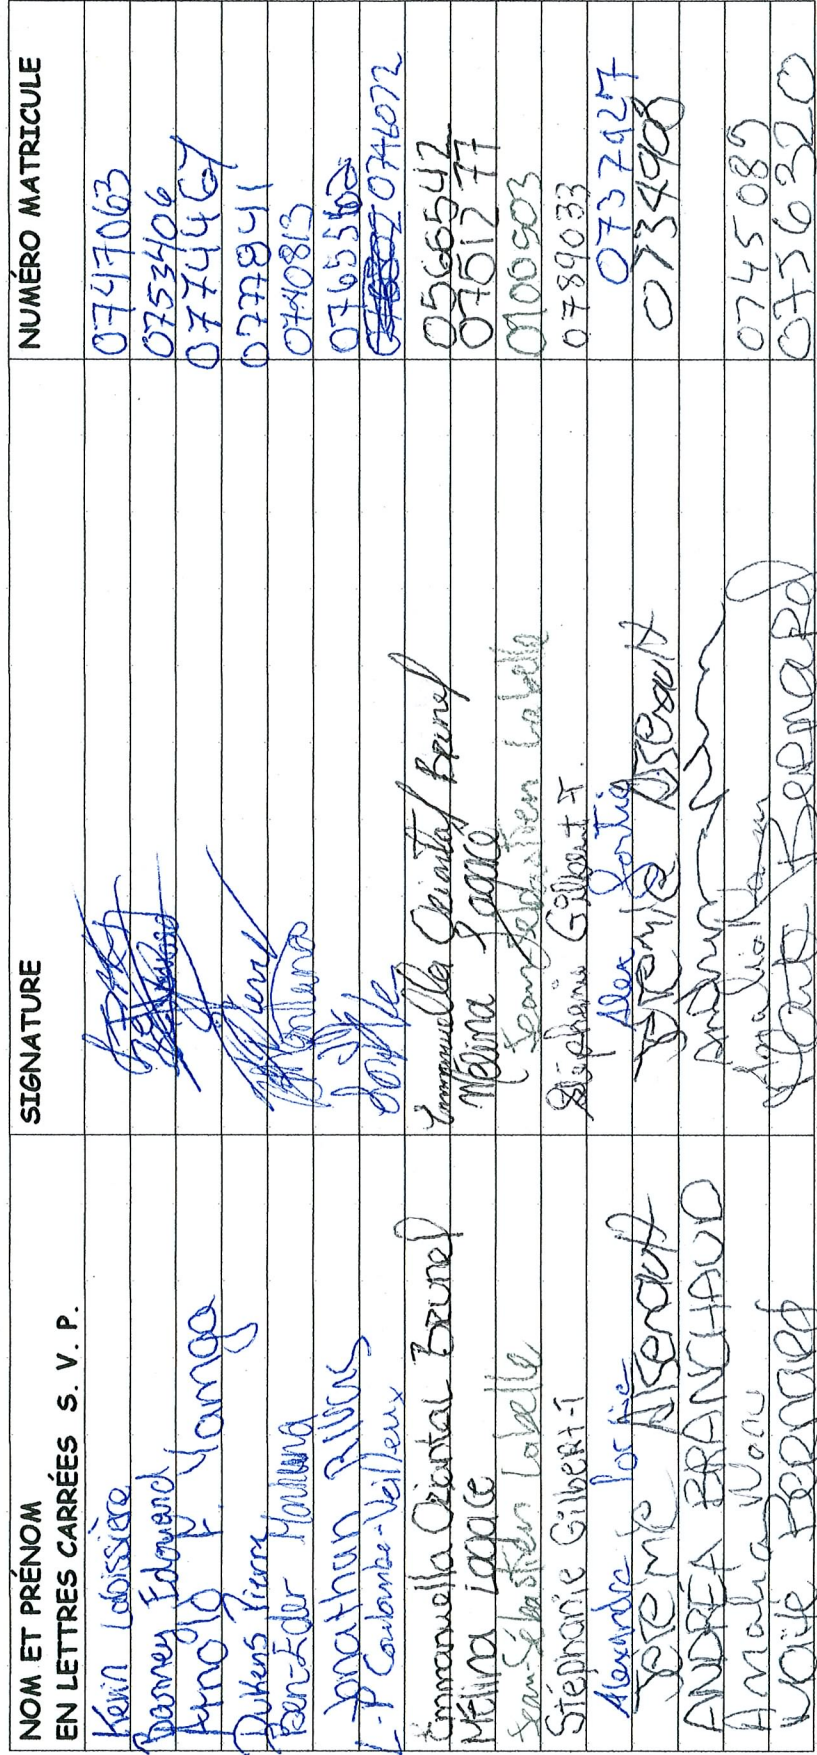 NOM ET PRÉNOM
EN LETTRES CARRÉES S. V. P. SIGNATURE NUMÉRO MATRICULE
Kevin Labissière 0747063
Barney Edouard 0753406
Arnold F. Yamga 0774467
Dukens Pierre 0777841
Ben-Eder 0740813
Jonathan
L-P Coulombe-Veilleux 0746072
Emmanuella Oriental Brunel Emmanuella Oriental Brunel 0566542
Mélina Lagacé Mélina Lagacé 0761277
Jean-Sébastien Labelle Jean Sébastien Labelle
Stéphanie Gilbert-T Stéphanie Gilbert T. 0789033
Alexandre Fortier Alex
Jérémie Arsenault Jérémie Arsenault 0734908
ANDRÉA BRANCHAUD
Amalia 0745089
Maïté BERNARD Maïté BERNARD 0756320